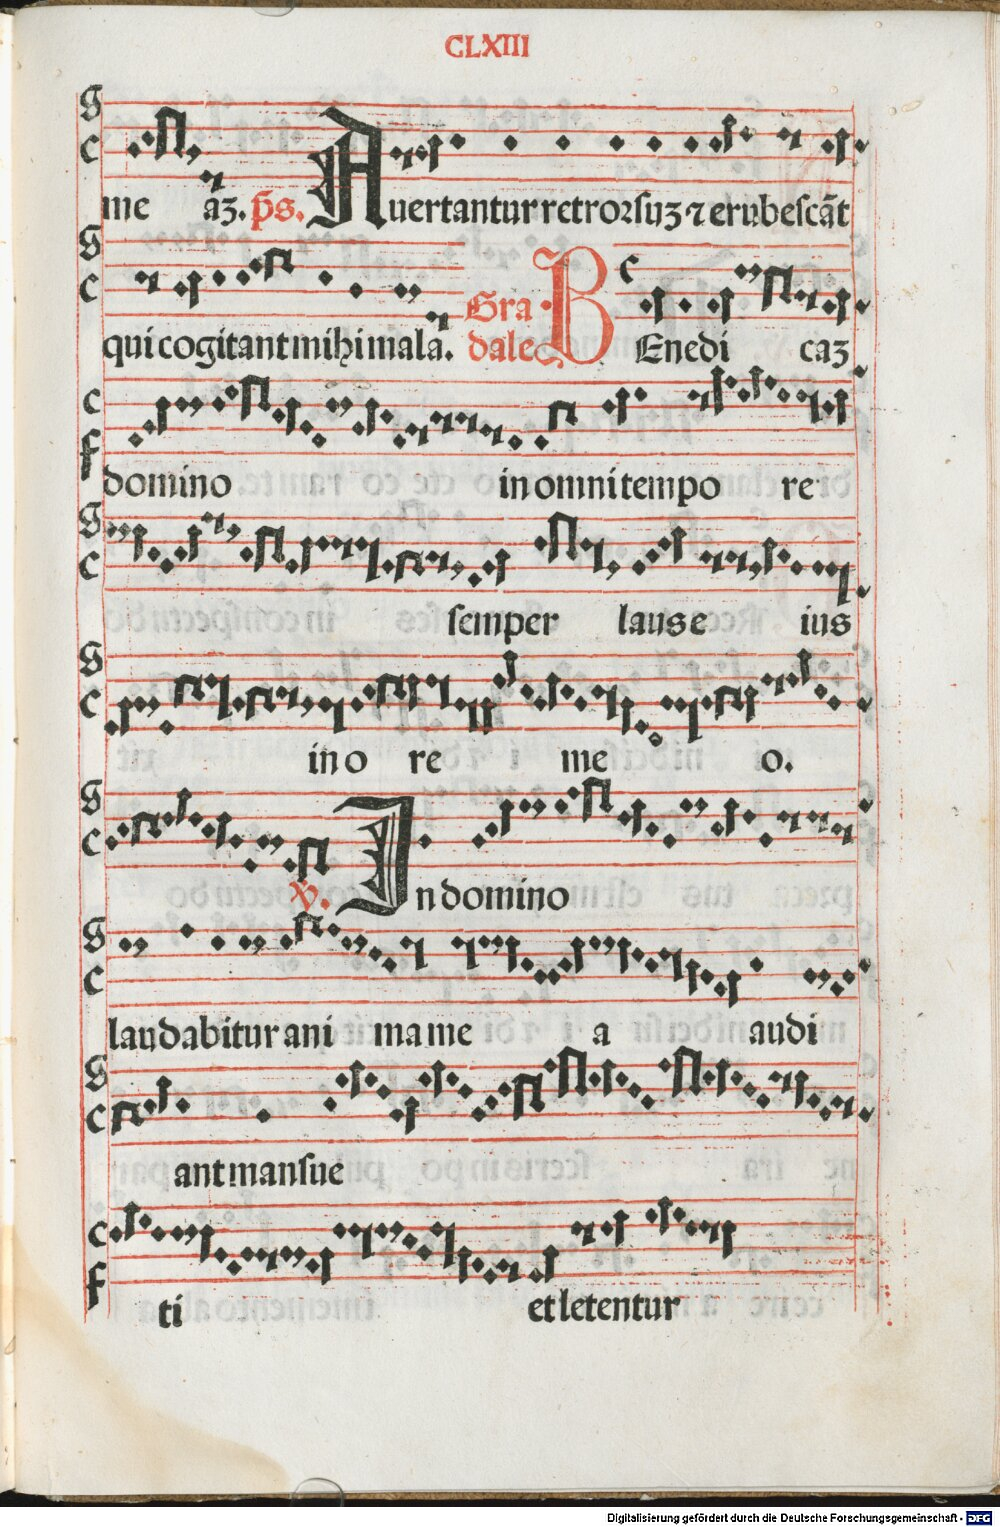 CLXIII
me aʒ. p̄s. Auertantur retroꝛsuʒ ⁊ erubescāt
qui cogitant mihi mala. Gradale BEnedi caʒ
domino in omni tempo re
semper laus e ius
in o re me o.
℣. In domino
laudabitur ani ma me a audi
ant mansue
ti et letentur
Digitalisierung gefördert durch die Deutsche Forschungsgemeinschaft - DFG